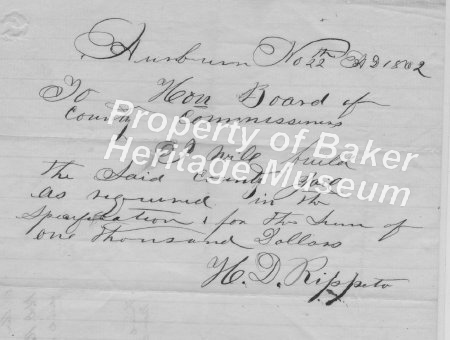 Auburn No 22th AD 1862
To Hon Board of
County Commissioners
I will build
the Said County Jail
as required in the
Specification, for the Sum of
one thousand Dollars
H. D. Rippeto
Property of Baker
Heritage Museum